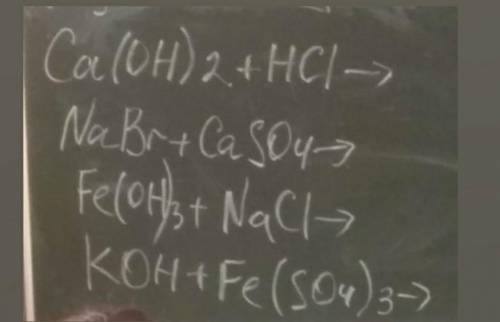 Ca(OH)2+HCl→
NaBr+CaSO4→
Fe(OH)3+NaCl→
KOH+Fe(SO4)3→